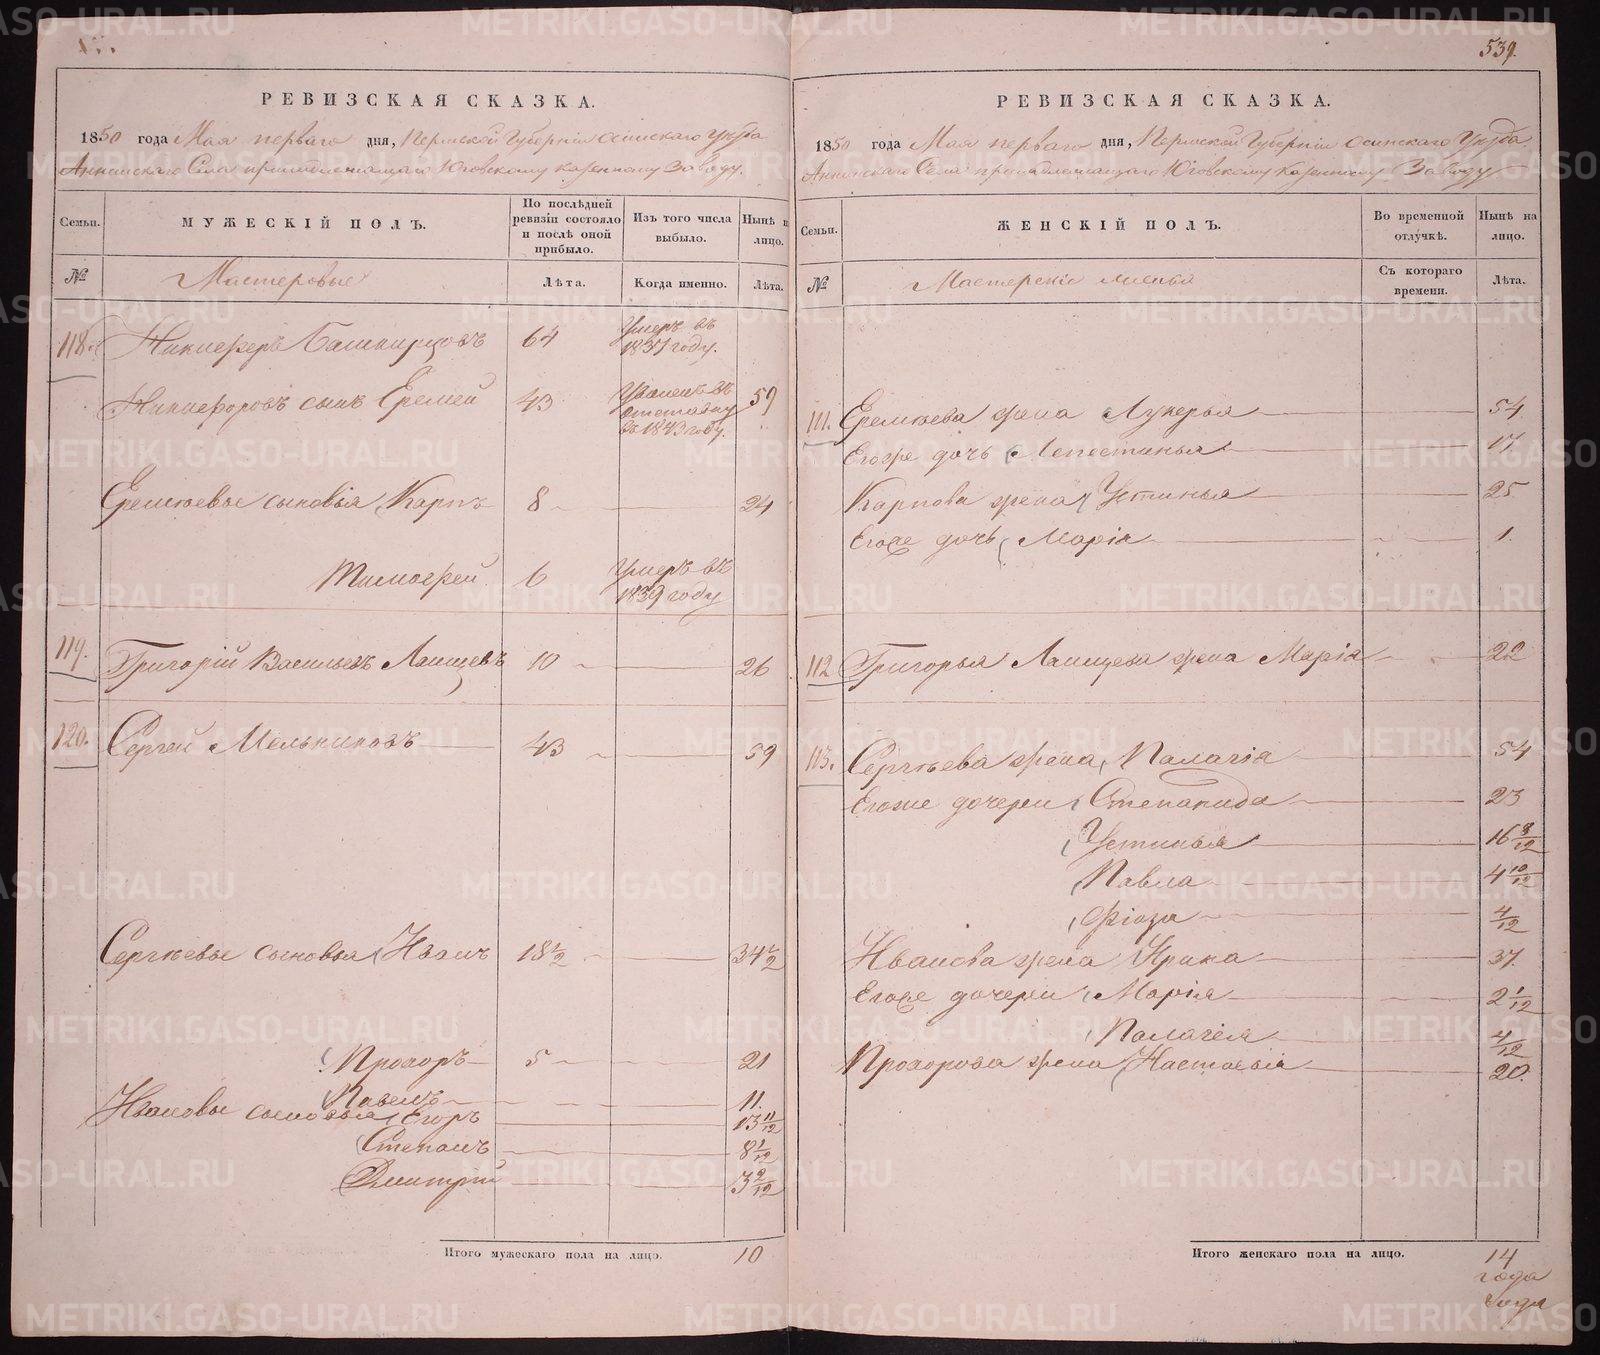 РЕВИЗСКАЯ СКАЗКА.
1850 года Мая перваго дня, Пермской Губерніи Осинскаго Уезда
Аннинскаго Села принадлежащаго Юговскому казенному Заводу.
Семьи.
МУЖЕСКІЙ ПОЛЪ.
По послѣдней ревизіи состояло и послѣ оной прибыло.
Изъ того числа выбыло.
Нынѣ на лицо.
№
Мастеровые
Лѣта.
Когда именно.
Лѣта.
118. Никифоръ Башкирцовъ 64 Умеръ въ 1837 году.
Никифоровъ сынъ Еремей 43 Уволенъ въ отставку въ 1843 году. 59
Еремѣевы сыновія Карпъ 8 24
Тимофей 6 Умеръ въ 1839 году
119. Григорій Васильевъ 10 26
120. Сергей Мельниковъ 43 59
Сергѣевы сыновья Иванъ 18 1/2 34 1/2
Прохоръ 5 21
Павелъ 11.
Ивановы сыновья Егоръ 13 11/12
Степанъ 8 1/12
Дмитрій 3 2/12
Итого мужескаго пола на лицо. 10
539.
РЕВИЗСКАЯ СКАЗКА.
1850 года Мая перваго дня, Пермской Губерніи Осинскаго Уезда
Аннинскаго Села принадлежащаго Юговскому казенному Заводу
Семьи.
ЖЕНСКІЙ ПОЛЪ.
Во временной отлучкѣ.
Нынѣ на лицо.
№
Мастерскіе
Съ котораго времени.
Лѣта.
111. Еремѣева жена Лукерья 54
Егоже дочь 17
Карпова жена Устинья 25
Егоже дочь Марія 1.
112 Григорья жена Марія 22
113. Сергѣева жена Палагія 54
Егоже дочери Степанида 23
Устинья 16 8/12
Павла 4 10/12
4/12
Иванова жена Ирина 37.
Егоже дочери Марія 2 1/12
Палагея 4/12
Прохорова жена Настасія 20.
Итого женскаго пола на лицо. 14